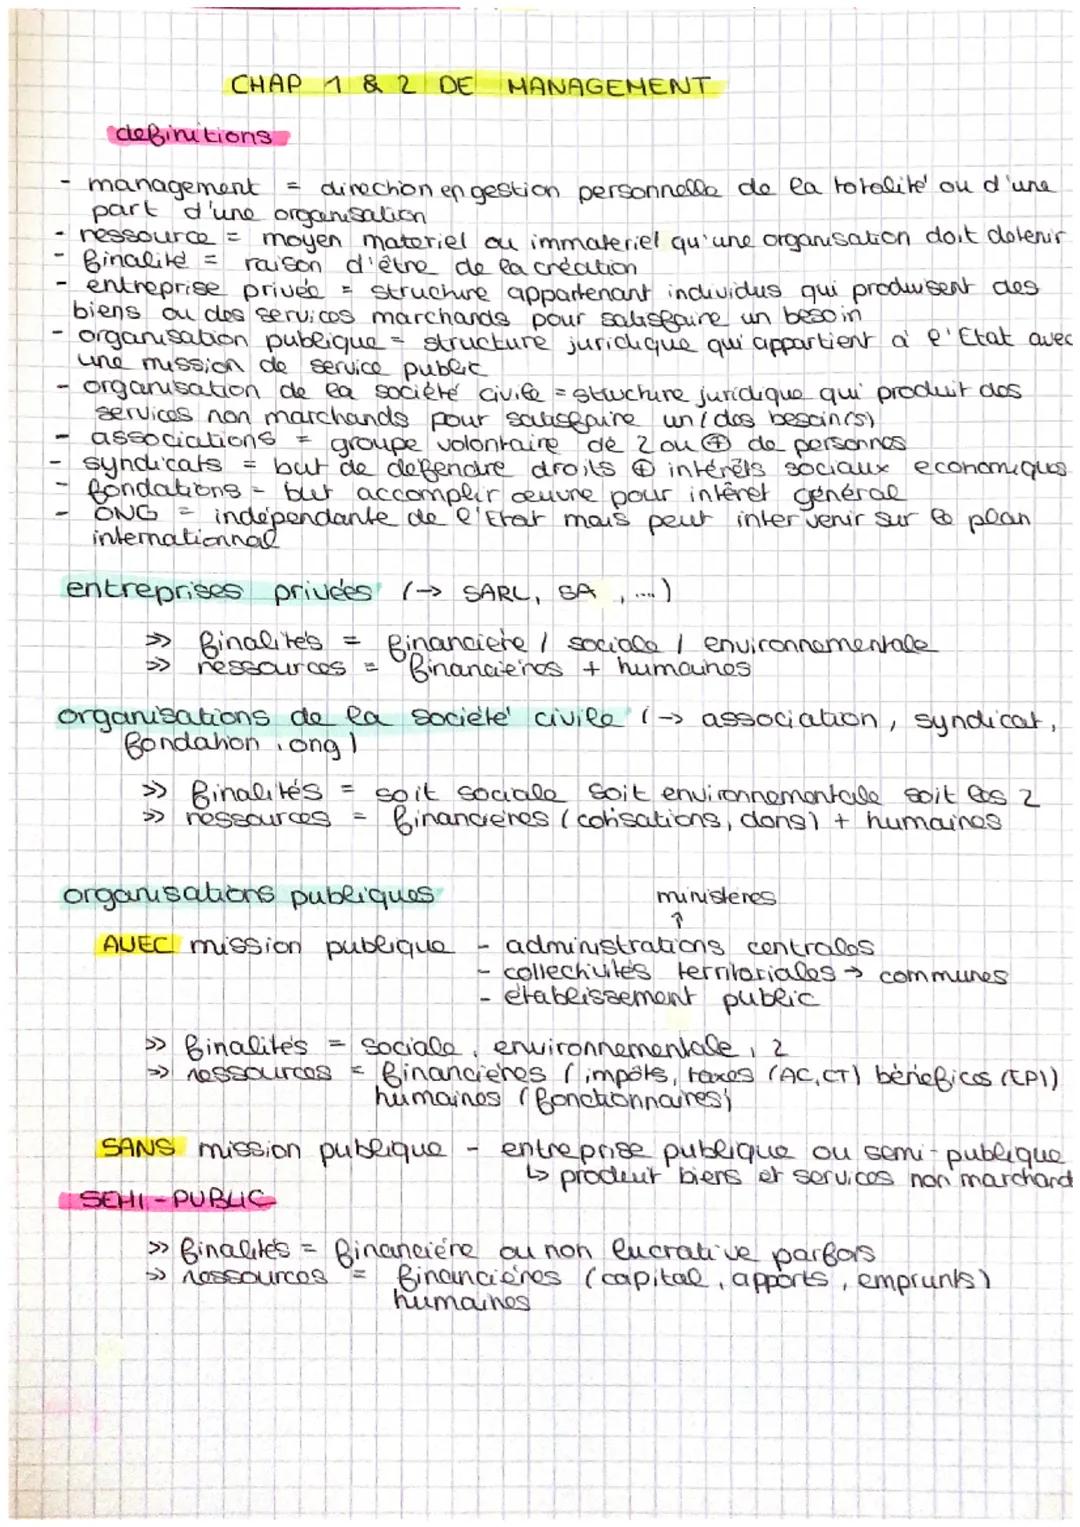 CHAP 1 & 2 DE MANAGEMENT
definitions
- management = direction en gestion personnelle de la totalité ou d'une
part d'une organisation
- ressource = moyen materiel ou immateriel qu'une organisation doit detenir
- finalité = raison d'être de la création
- entreprise privée = structure appartenant individus qui produisent des
biens ou des services marchands pour satisfaire un besoin
- organisation publique = structure juridique qui appartient à l'Etat avec
une mission de service public
- organisation de la société civile = structure juridique qui produit des
services non marchands pour satisfaire un/des besoin(s)
- associations = groupe volontaire de 2 ou ⊕ de personnes
- syndicats = but de defendre droits ⊕ intérêts sociaux economiques
- fondations = but accomplir œuvre pour intêret général
- ONG = indépendante de l'Etat mais peut intervenir sur le plan
internationnal
entreprises privées (→ SARL, SA, ...)
>> finalités = financière / sociale / environnementale
>> ressources = financières + humaines
organisations de la société civile (→ association, syndicat,
fondation, ong)
>> finalités = soit sociale soit environnementale soit les 2
>> ressources = financières (cotisations, dons) + humaines
organisations publiques
ministères
↑
AVEC mission publique - administrations centrales
- collectivités territoriales → communes
- etablissement public
>> finalités = sociale, environnementale, 2
>> ressources = financières (impôts, taxes (AC, CT) bénéfices (EPI)
humaines (fonctionnaires)
SANS mission publique - entreprise publique ou semi-publique
↳ produit biens et services non marchand
SEMI-PUBLIC
>> finalités = financière ou non lucrative parfois
>> ressources = financières (capital, apports, emprunts)
humaines